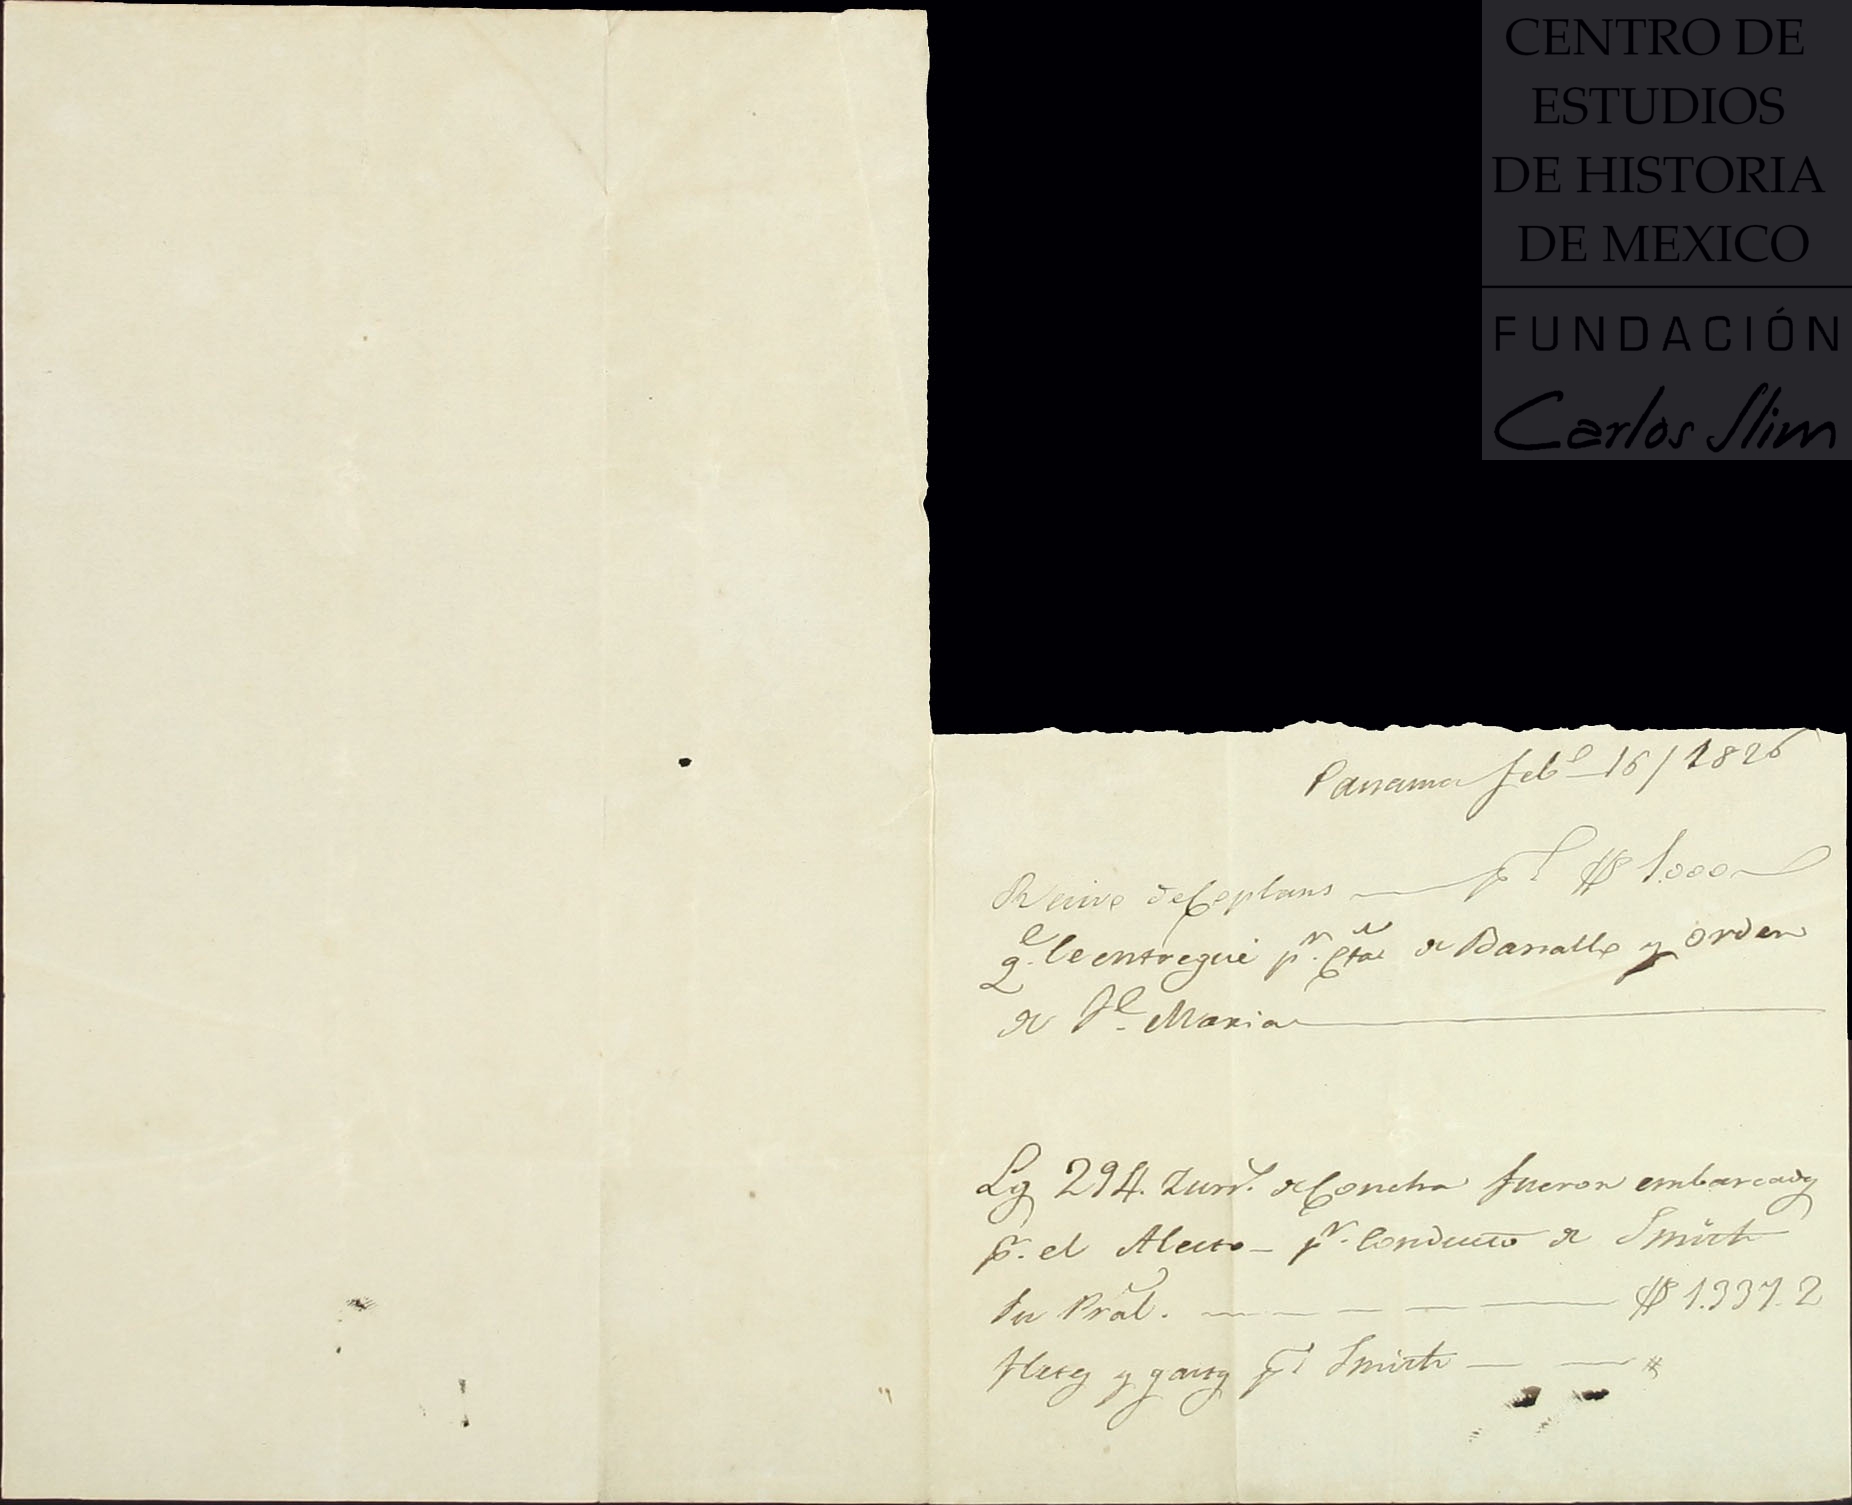 CENTRO DE
ESTUDIOS
DE HISTORIA
DE MEXICO
FUNDACIÓN
Carlos Slim
Panama Feb.º 16/1826
de Coplans $ 1.000
q.e le entregué p.r Cta de y orden
de Maria
Los 294. Zurr.s de Concha fueron embarcados
p.r el Alecto p.r Conducto de Smith
Su Pral. $ 1.337.2
Fletes y gastos p.s Smith #